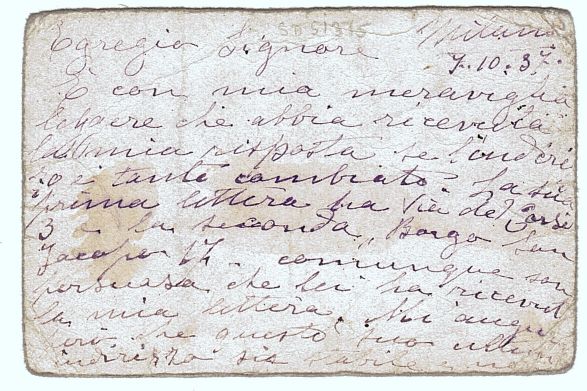 SD51375
Egregio Signore Milano
7.10.37.
È con mia meraviglia
che abbia ricevuta
mia risposta se l'
io è tanto cambiato. La sua
prima lettera ha Via dei Corsi
3 e la seconda "Borgo San
Jacopo 17 - comunque son
persuasa che lei ha ricevut
la mia lettera. Mi augu
rerò che questo suo ultimo
indirizzo sia stabile e non